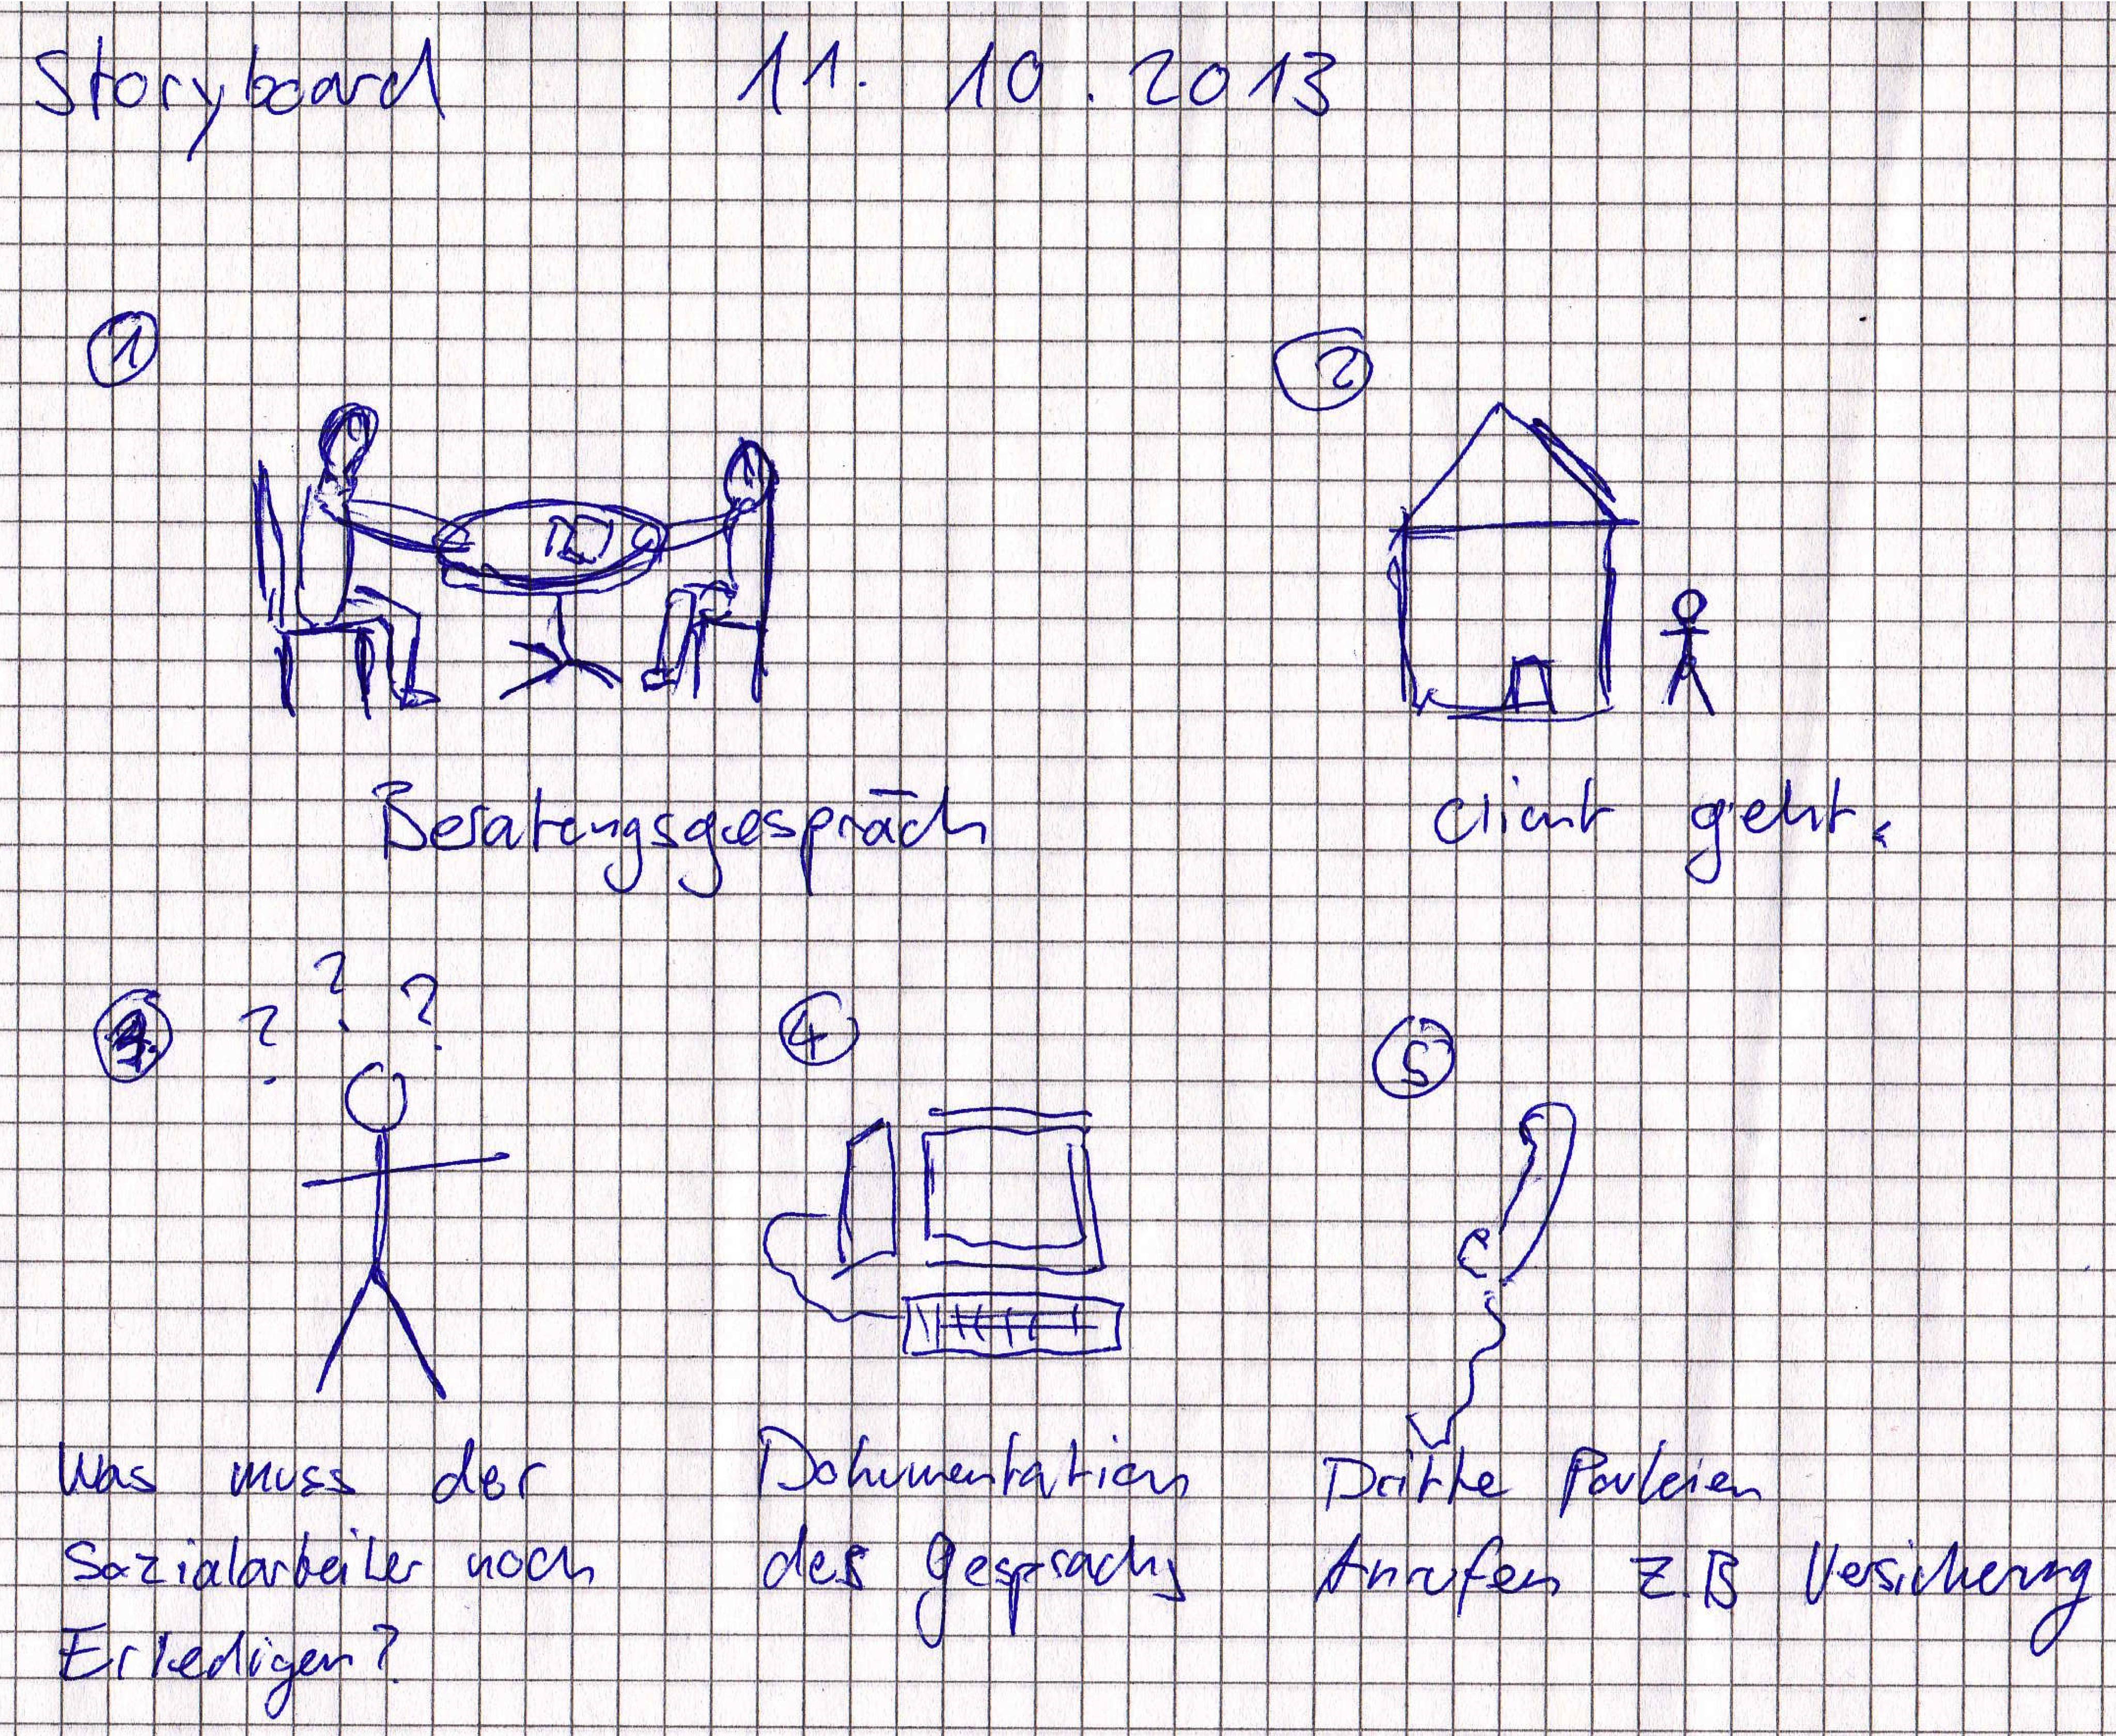 Storyboard 11. 10. 2013
1
2
Beratungsgespräch
client geht.
? ? ?
3 4 5
Was muss der
Sozialarbeiter noch
Erledigen?
Dokumentation
des gesprachs
Dritte Parteien
Anrufen z.B Versicherung